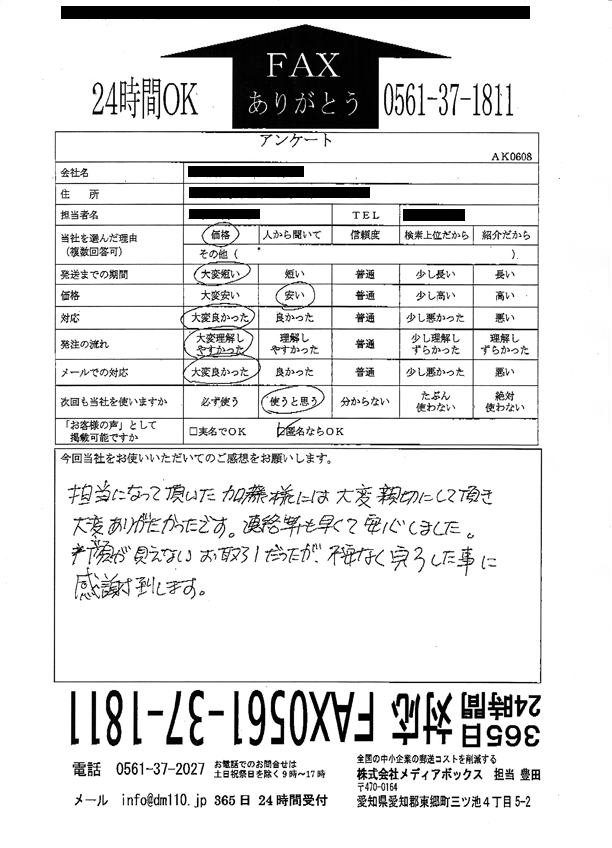 FAX
ありがとう
24時間OK
0561-37-1811
アンケート
AK0608
会社名
住 所
担当者名 TEL
当社を選んだ理由 (複数回答可) 価格 人から聞いて 信頼度 検索上位だから 紹介だから
その他( )
発送までの期間 大変短い 短い 普通 少し長い 長い
価格 大変安い 安い 普通 少し高い 高い
対応 大変良かった 良かった 普通 少し悪かった 悪い
発注の流れ 大変理解しやすかった 理解しやすかった 普通 少し理解しずらかった 理解しずらかった
メールでの対応 大変良かった 良かった 普通 少し悪かった 悪い
次回も当社を使いますか 必ず使う 使うと思う 分からない たぶん使わない 絶対使わない
「お客様の声」として掲載可能ですか □実名でOK ☑匿名ならOK
今回当社をお使いいただいてのご感想をお願いします。
担当になって頂いた加藤様には大変親切にして頂き
大変ありがたかったです。連絡等も早くて安心しました。
顔が見えないお取引だったが、不安なく完了した事に
感謝致します。
365日24時間対応 FAX0561-37-1811
電話 0561-37-2027 お電話でのお問合せは土日祝祭日を除く9時~17時
メール info@dm110.jp 365日24時間受付
全国の中小企業の郵送コストを削減する
株式会社メディアボックス 担当 豊田
〒470-0164
愛知県愛知郡東郷町三ツ池4丁目5-2